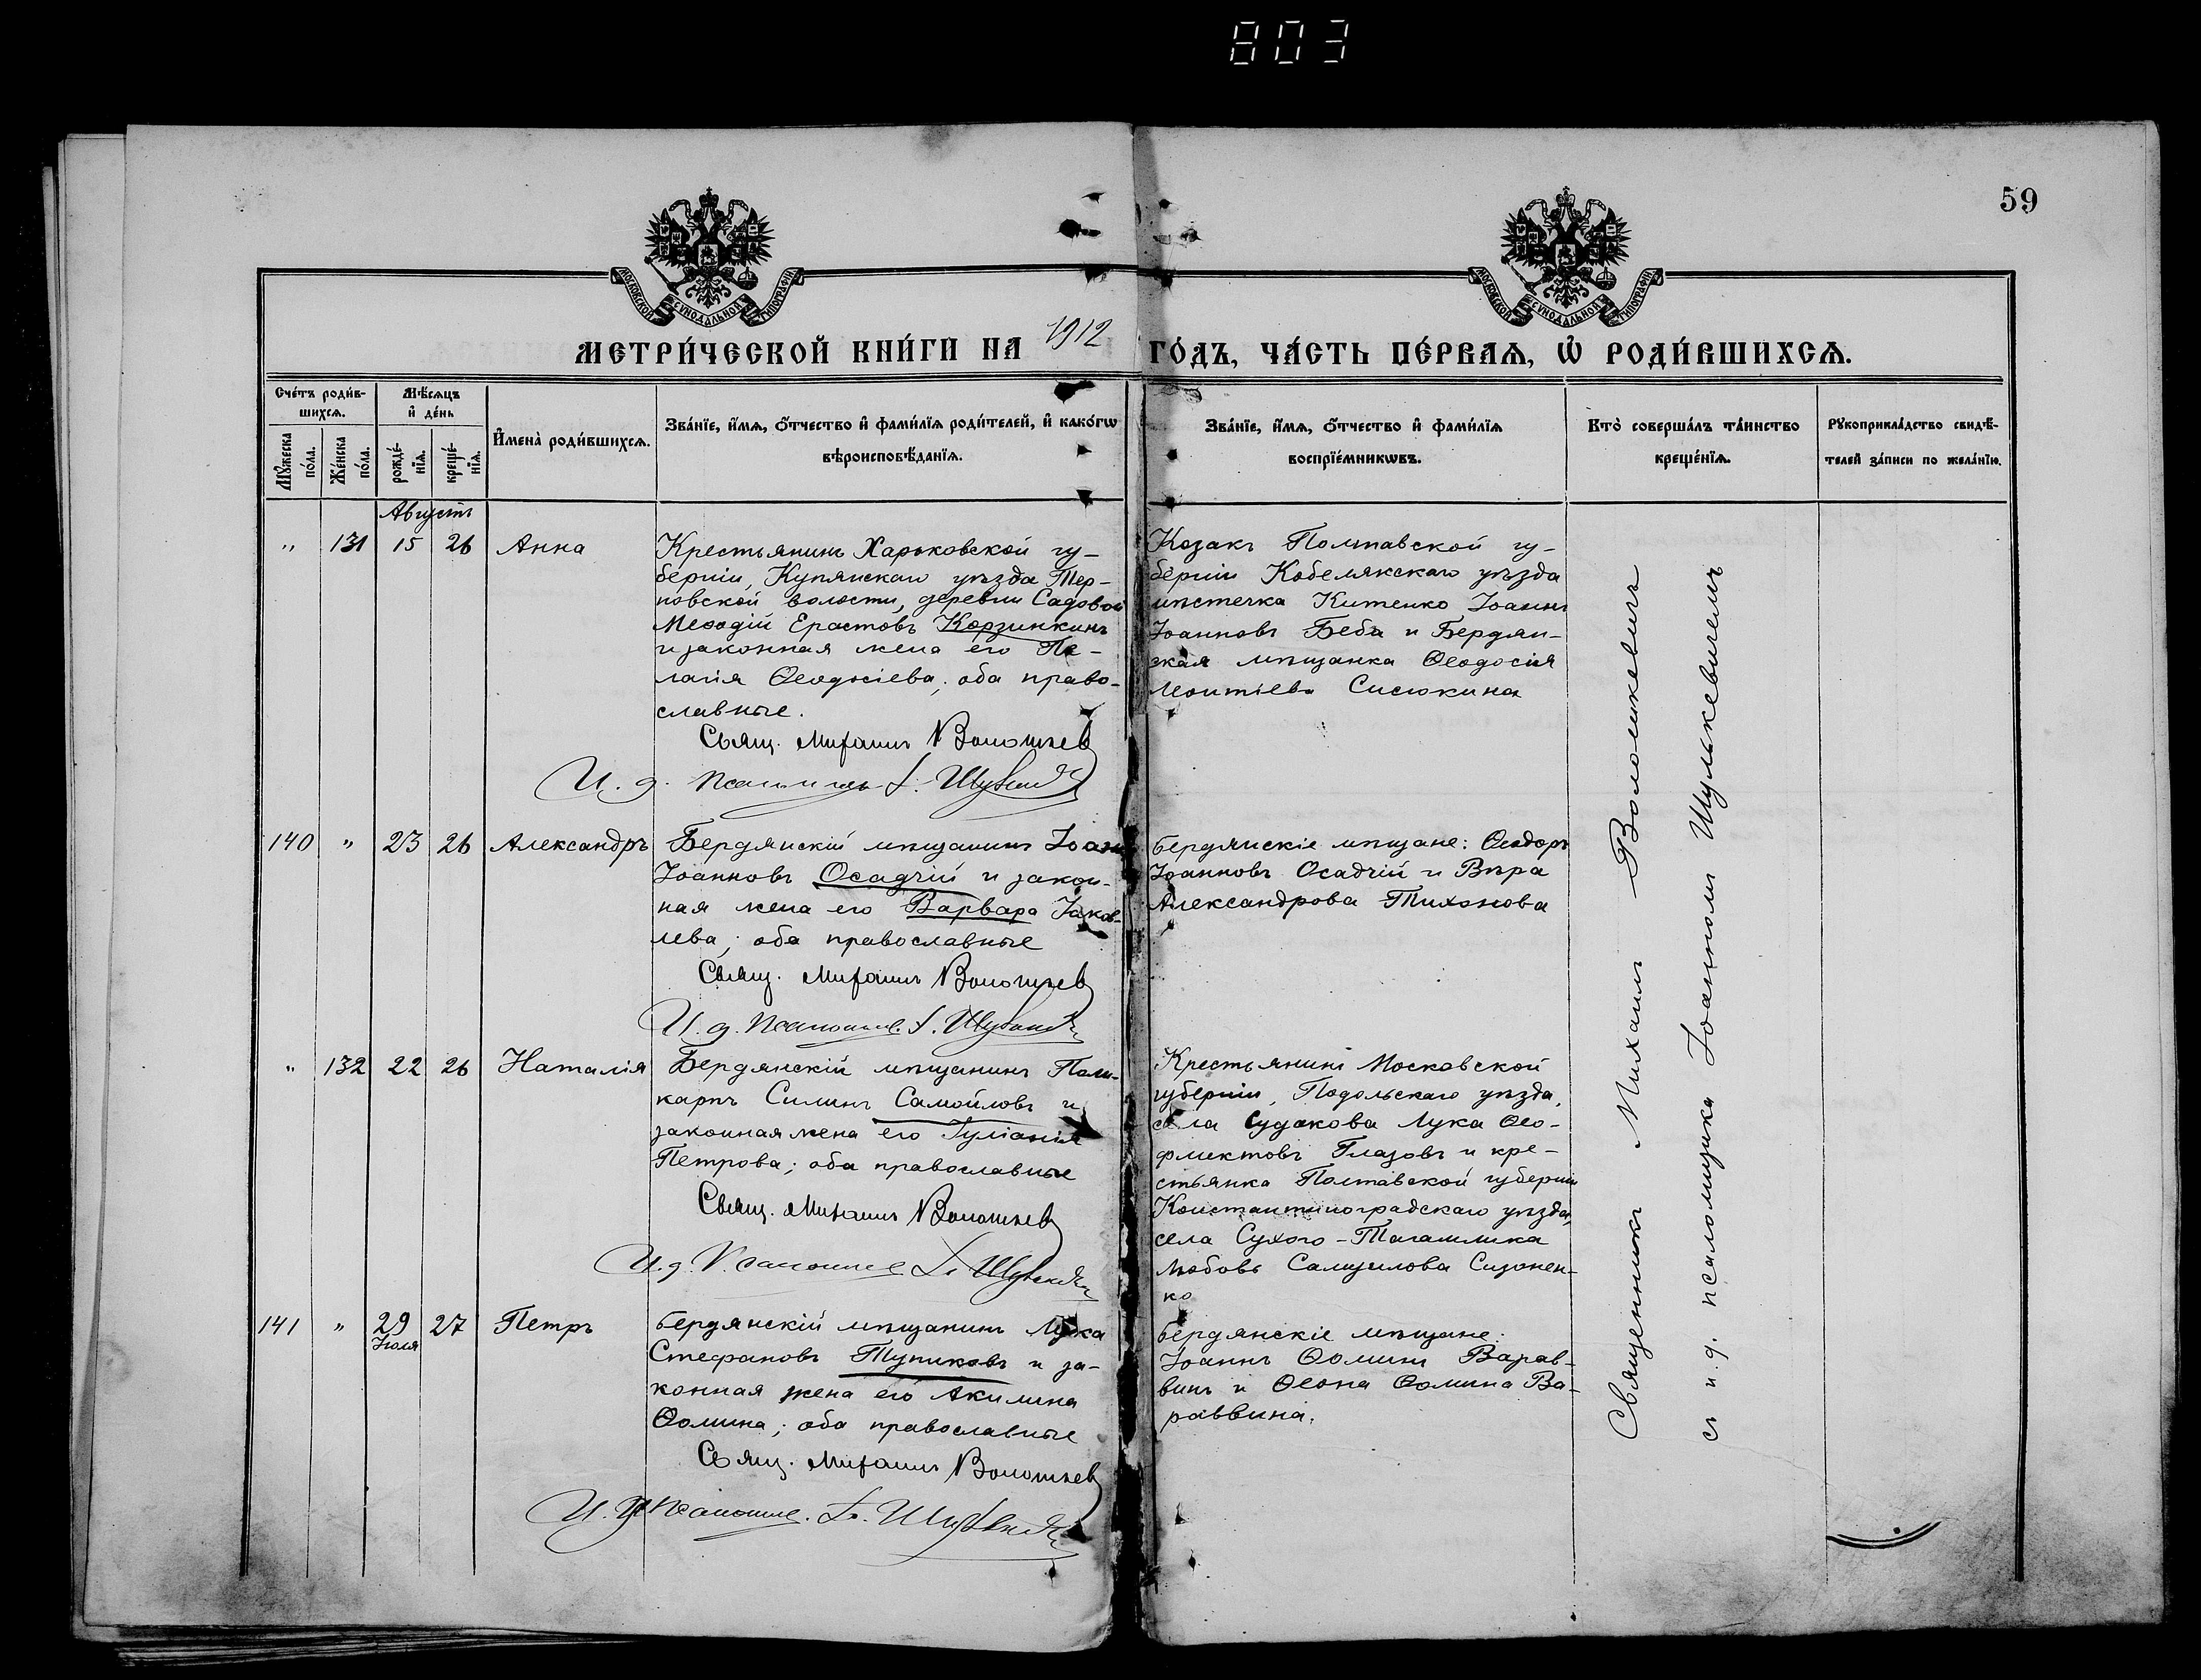 803
59
МОСКОВСКОЙ СѴНОДАЛЬНОЙ ТИПОГРАФІИ
МОСКОВСКОЙ СѴНОДАЛЬНОЙ ТИПОГРАФІИ
МЕТРИ́ЧЕСКОЙ КНИ́ГИ НА 1912 ГО́ДЪ, ЧА́СТЬ ПЕ́РВАѦ, Ѽ РОДИ́ВШИХСѦ.
Сче́тъ роди́в-
шихсѧ.
Мꙋжеска по́ла.
Же́нска по́ла.
Мѣ́сѧцъ
и҆ де́нь
рожде́-
нїѧ.
креще́-
нїѧ.
И҆мена̀ роди́вшихсѧ.
Зва́нїе, и҆́мѧ, ѻ҆́тчество и҆ фами́лїѧ роди́телей, и҆ како́гѡ
вѣроисповѣ́данїѧ.
Зва́нїе, и҆́мѧ, ѻ҆́тчество и҆ фами́лїѧ
воспрїе́мникѡвъ.
Кто̀ соверша́лъ та́инство
креще́нїѧ.
Рꙋкоприкла́дство свидѣ́-
телей за́писи по жела́нїю.
Августъ
" 131 15 26 Анна
Крестьянинъ Харьковской гу-
берніи, Купянскаго уѣзда Тер-
новской волости, деревни Садовой
Меѳодій Ерастовъ Корзинкинъ
и законная жена его Пе-
лагія Ѳеодосіева; оба право-
славные.
Свящ. Михаилъ Волошкев
И. д. псаломщ. І. Шульк
Козакъ Полтавской гу-
берніи Кобелякскаго уѣзда
мѣстечка Китенко Іоаннъ
Іоанновъ Беба и Бердян-
ская мѣщанка Ѳеодосія
Леонтіева Сисюкина
140 " 23 26 Александръ
Бердянскій мѣщанинъ Іоаннъ
Іоанновъ Осадчій и закон-
ная жена его Варвара Іаков-
лева; оба православные
Свящ. Михаилъ Волошкев
И. д. псаломщ. І. Шульк
Бердянскіе мѣщане: Ѳеодоръ
Іоанновъ Осадчій и Вѣра
Александрова Тихонова
" 132 22 26 Наталія
Бердянскій мѣщанинъ Поли-
карпъ Силинъ Самойловъ и
законная жена его Іуліанія
Петрова; оба православные
Свящ. Михаилъ Волошкев
И. д. Псаломщ. І. Шульк
Крестьянинъ Московской
губерніи, Подольскаго уѣзда,
села Судакова Лука Ѳео-
филактовъ Глазовъ и кре-
стьянка Полтавской губерніи
Константиноградскаго уѣзда,
села Сухого-Тагамлика
Любовь Самуилова Сизонен-
ко
141 " 29 27 Петръ
Іюля
Бердянскій мѣщанинъ Лука
Стефановъ Тупиковъ и за-
конная жена его Акилина
Ѳомина; оба православные
Свящ. Михаилъ Волошкев
И. д. псаломщ. І. Шульк
Бердянскіе мѣщане:
Іоаннъ Ѳоминъ Варав-
винъ и Ѳеона Ѳомина Ва-
раввина.
Священникъ Михаилъ Волошкевичъ
съ и. д. псаломщика Іоанномъ Шулькевичемъ